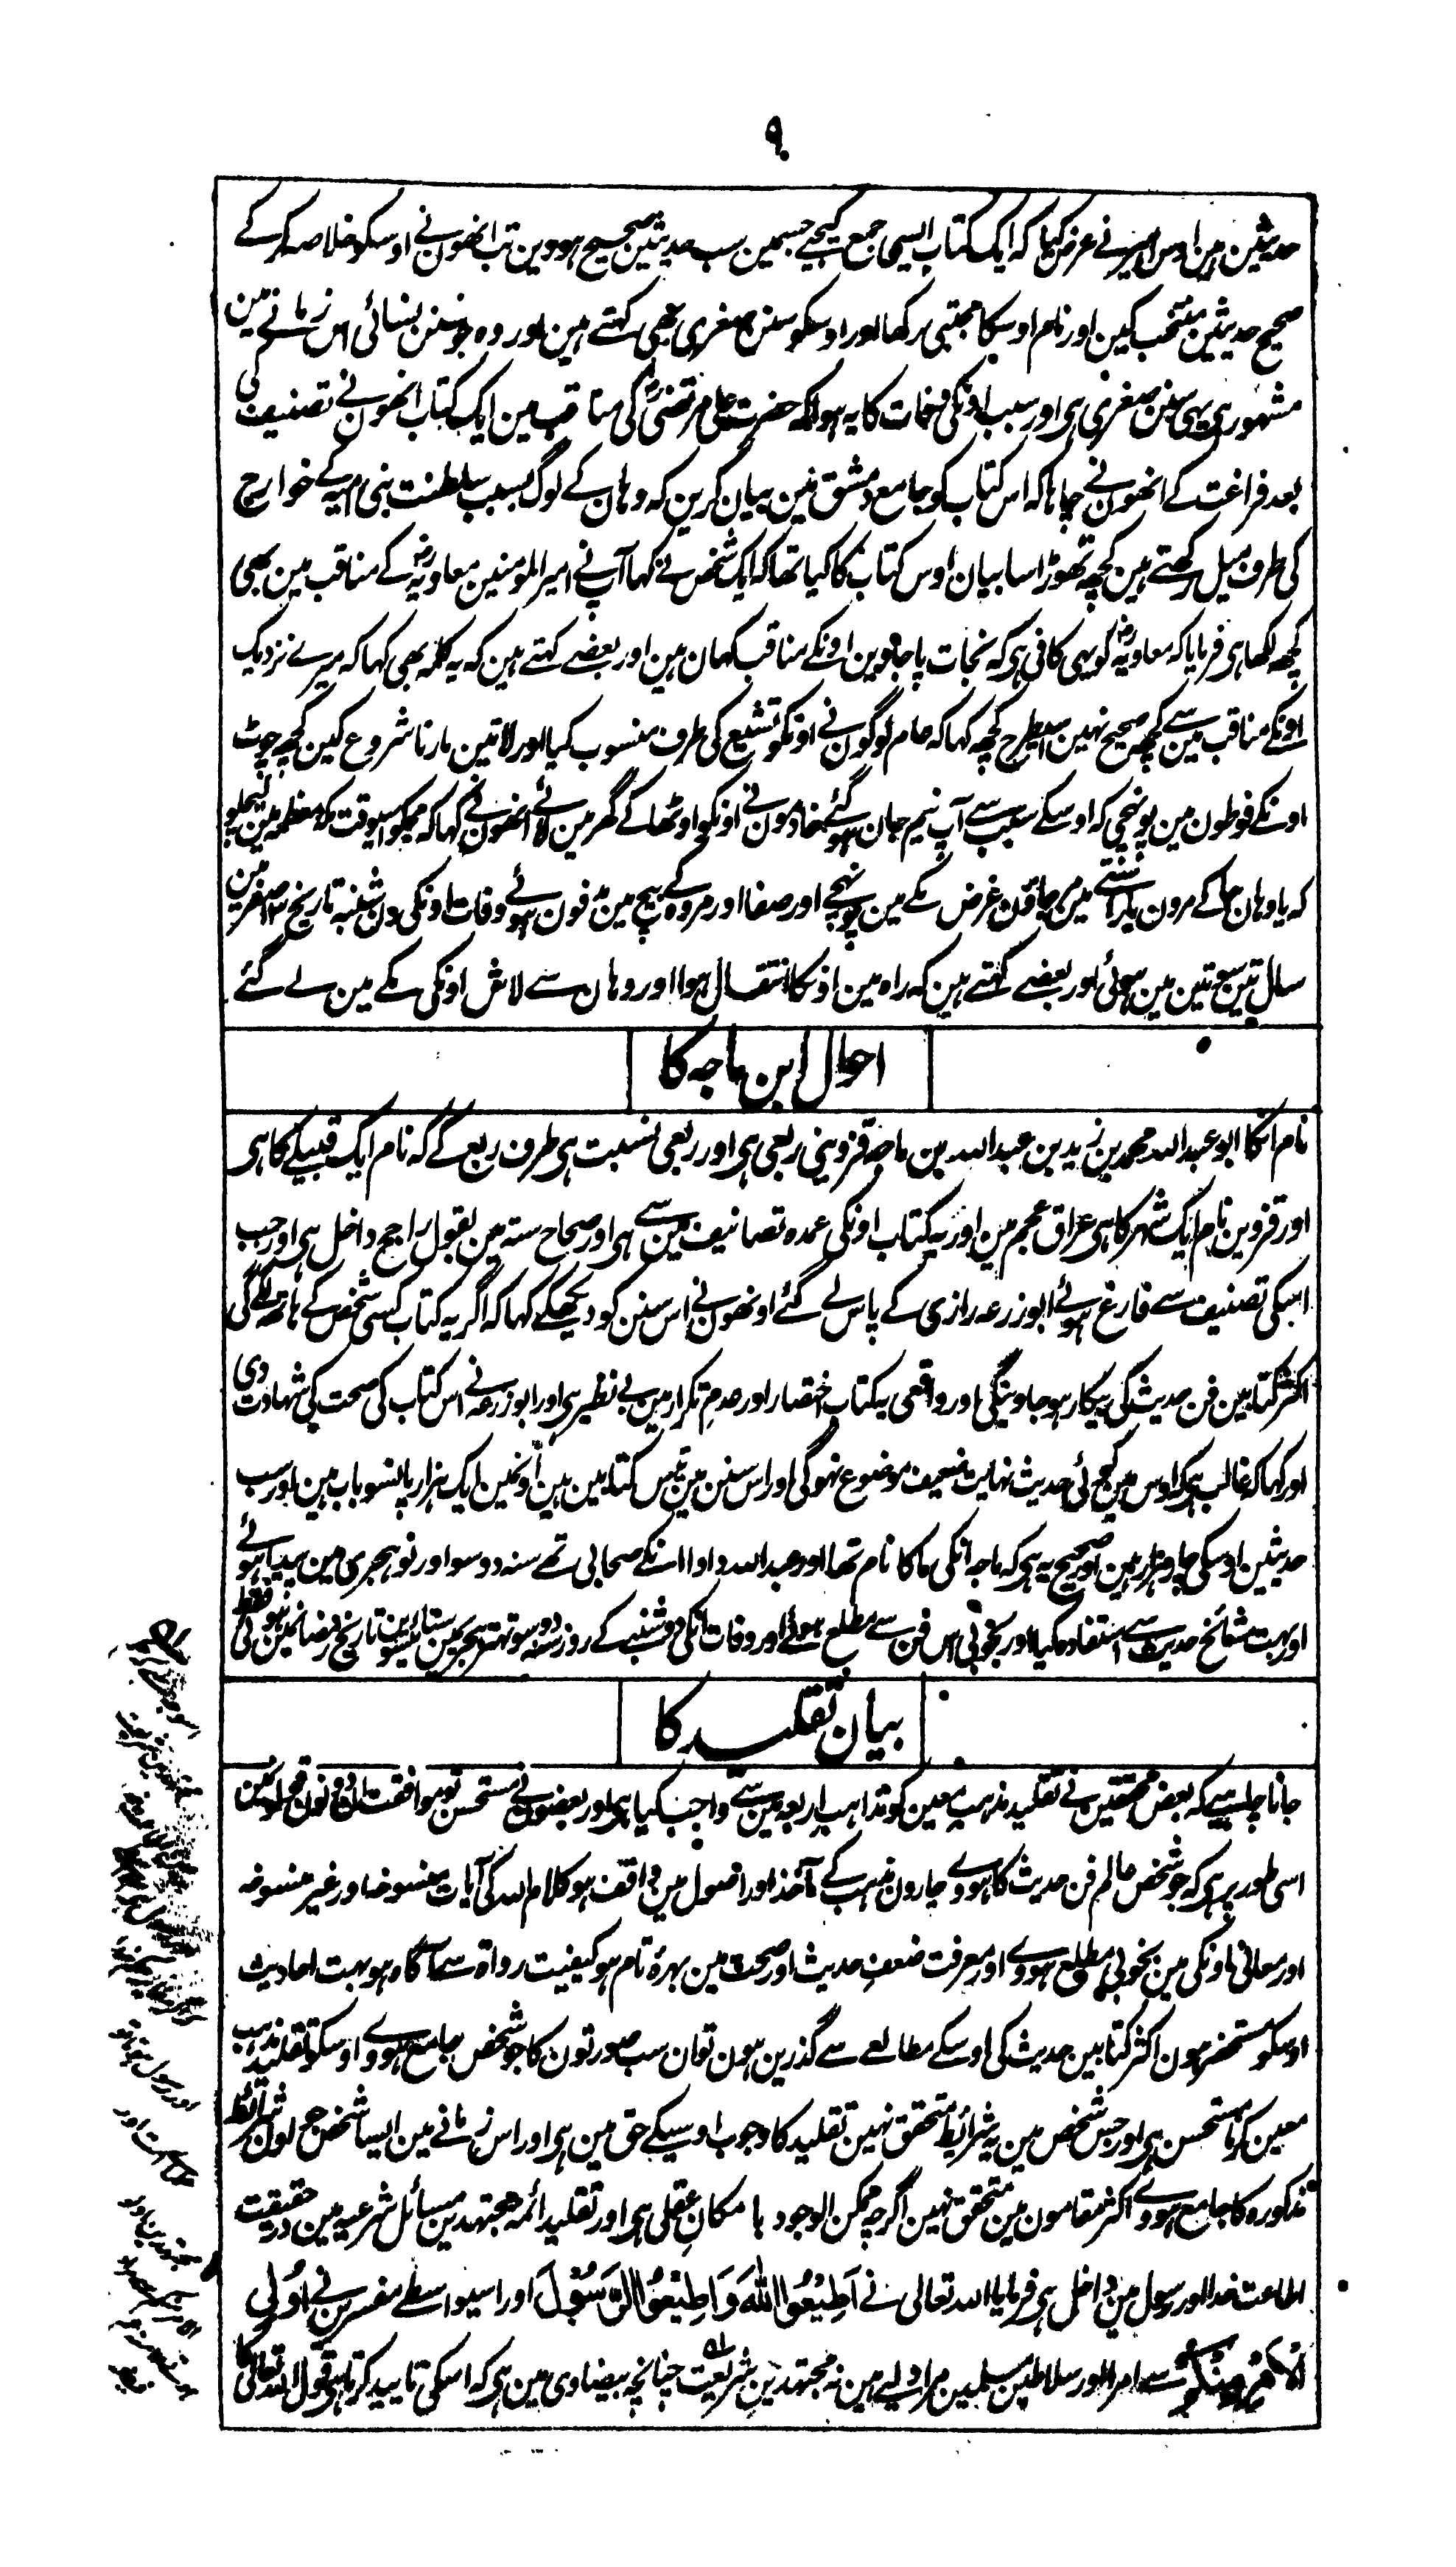 ۹
حدیثین ہین اوس امیر نے عرض کیا کہ ایک کتاب ایسی جمع کیجیے جسمین سب حدیثین صحیح ہووین تب انھون نے اوسکو خلاصہ کر کے
صحیح حدیثین منتخب کین اور نام اوسکا مجتبیٰ رکھا اور اوسکو سنن صغریٰ بھی کہتے ہین اور وہ جو سنن نسائی اس زمانے مین
مشہور ہی یہی سنن صغریٰ ہی اور سبب اونکی وفات کا یہ ہوا کہ حضرت علی مرتضیٰؓ کی مناقب مین ایک کتاب انھون نے تصنیف کی
بعد فراغت کے انھون نے چاہا کہ اس کتاب کو جامع دمشق مین بیان کرین کہ وہان کے لوگ بسبب سلطنت بنی امیہ کے خوارج
کی طرف میل رکھتے ہین کچھ تھوڑا سا بیان اوس کتاب کا کیا تھا کہ ایک شخص نے کہا آپ نے امیر المومنین معاویہؓ کے مناقب مین بھی
کچھ لکھا ہی فرمایا کہ معاویہؓ کو یہی کافی ہی کہ نجات پا جاوین اونکے مناقب کہان ہین اور بعضے کہتے ہین کہ یہ کلمہ بھی کہا کہ میرے نزدیک
اونکے مناقب مین سے کچھ صحیح نہین اسیطرح کچھ کہا کہ عام لوگون نے اونکو تشیع کی طرف منسوب کیا اور لاتین مارنا شروع کین کچھ چوٹ
اونکے فوطون مین پونہچی کہ اوسکے سبب سے آپ نیم جان ہو گئے خادمون نے اونکو اوٹھا کے گھر مین لائے انھون نے کہا کہ مجکو اسیوقت مکہ معظمہ مین لیچلو
کہ یا وہان جا کے مرون یا رستے مین مر جاؤن غرض مکے مین پونہچے اور صفا اور مروہ کے بیچ مین مدفون ہوئے وفات اونکی دن شنبہ تاریخ ۱۳ صفر مین
سال تین سو تین مین ہوئی اور بعضے کہتے ہین کہ راہ مین اونکا انتقال ہوا اور وہان سے لاش اونکی مکے مین لے گئے
احوال ابن ماجہ کا
نام انکا ابو عبد اللہ محمد بن زید بن عبد اللہ بن ماجہ قزوینی ربعی ہی اور ربعی نسبت ہی طرف ربع کے کہ نام ایک قبیلے کا ہی
اور قزوین نام ایک شہر کا ہی عراق عجم مین اور یہ کتاب اونکی عمدہ تصانیف مین سے ہی اور صحاح ستہ مین بقول راجح داخل ہی اور جب
اسکی تصنیف سے فارغ ہوئے ابو زرعہ رازی کے پاس لے گئے اونھون نے اس سنن کو دیکھکے کہا کہ اگر یہ کتاب کسی شخص کے ہاتھ لگے گی
اکثر کتابین فن حدیث کی بیکار ہو جاوینگی اور واقعی یہ کتاب اختصار اور عدم تکرار مین بے نظیر ہی اور ابو زرعہ نے اس کتاب کی صحت کی شہادت دی
اور کہا کہ غالب ہی کہ اوس مین کوئی حدیث نہایت ضعیف موضوع نہوگی اور اس سنن مین تیس کتابین ہین اونمین ایک ہزار پانسو باب ہین اور سب
حدیثین اوسکی چار ہزار ہین اور صحیح یہ ہی کہ ماجہ انکی ما کا نام تھا اور عبد اللہ دادا انکے صحابی تھے سنہ دو سو اور نو ہجری مین پیدا ہوئے
اور بہت مشائخ حدیث سے استفادہ کیا اور بخوبی اس فن سے مطلع ہوئے اور وفات انکی دوشنبہ کے روز سنہ دو سو تہتر ہجری مین ستائیسوین تاریخ رمضان مین ہوئی فقط
بیان تقلید کا
جانا چاہیے کہ بعض محققین نے تقلید مذہب معین کو مذاہب اربعہ مین سے واجب کیا ہی اور بعضون نے مستحسن تو موافقت ان دونون قولون مین
اسی طور پر ہی کہ جو شخص عالم فن حدیث کا ہووے چارون مذہب کے مآخذ اور اصول مین واقف ہو کلام اللہ کی آیات منسوخہ اور غیر منسوخہ
اور معانی اونکی مین بخوبی مطلع ہووے اور معرفت ضعف حدیث اور صحت مین بہرۂ تام ہو کیفیت رواۃ سے آگاہ ہو بہت احادیث
اوسکو مستحضر ہون اکثر کتابین حدیث کی اوسکے مطالعے سے گذرین ہون تو ان سب صورتون کا جو شخص جامع ہووے اوسکو تقلید مذہب
معین کرنا مستحسن ہی اور جس شخص مین یہ شرائط متحقق نہین تقلید کا وجوب اوسیکے حق مین ہی اور اس زمانے مین ایسا شخص جو ان شرائط
مذکورہ کا جامع ہووے اکثر مقامون مین متحقق نہین اگرچہ ممکن الوجود بامکان عقلی ہی اور تقلید ائمہ مجتہدین مسائل شرعیہ مین در حقیقت
اطاعت خدا اور رسول مین داخل ہی فرمایا اللہ تعالی نے اَطِیْعُوا اللّٰہَ وَاَطِیْعُوا الرَّسُوْلَ اور اسیواسطے مفسرین نے اُولِی
الْاَمْرِ مِنْکُمْ سے امرا اور سلاطین مسلمین مراد لیے ہین نہ مجتہدین شریعت چنانچہ بیضاوی مین ہی کہ اسکی تایید کرتا ہی قول اللہ تعالی کا